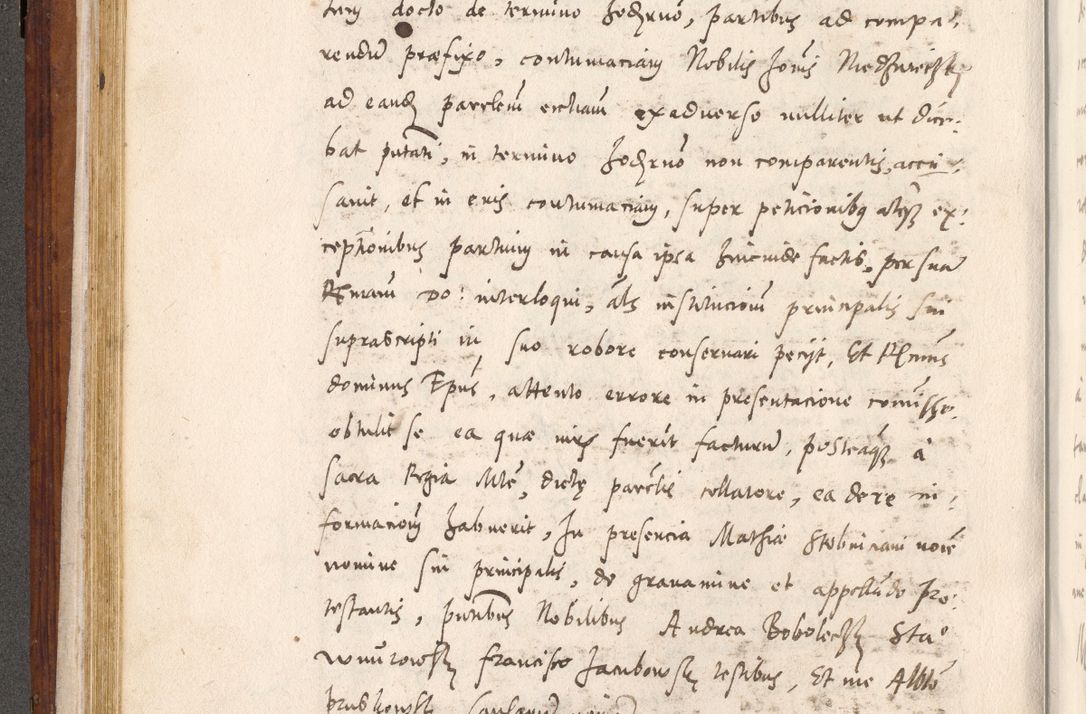 tum docto de termino hodierno, partibus ad compa-
rendum præfixo, contumaciam Nobilis Joannis Niedzwieczky
ad eandem parrochialem ecclesiam ex adverso nulliter ut dice-
bat putati, in termino hodierno non comparentis, accu-
savit, et in eius contumaciam, super peticionibus atque ex-
ceptionibus partium in causa ipsa hincinde factis, per suam
Rmam Do: interloqui, ac institucionem principalis sui
suprascripti in suo robore conservari peciit, Et Rmus
dominus Epus, attento errore in presentacione commisso
obtulit se ea quæ iuris fuerit facturum, posteaque à
sacra Regia Mte, dictę parochialis collatore, ea de re in-
formacionem habuerit, In presencia Mathiæ Stobniciani noie
nomine sui principalis, de gravamine et appellando pro-
testantis, presentibus Nobilibus Andrea Bobolecky Sta°
Francisco Jacubowsky testibus, Et me Alberto